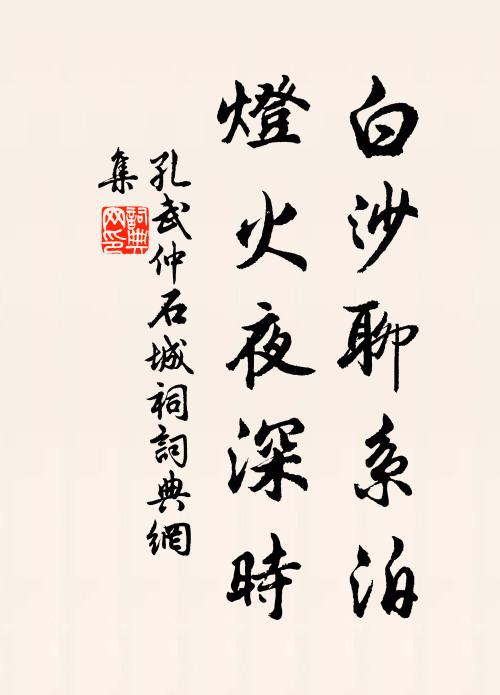 白沙聊系泊
燈火夜深時
孔武仲石城祠詞典網
集
詞典
网印